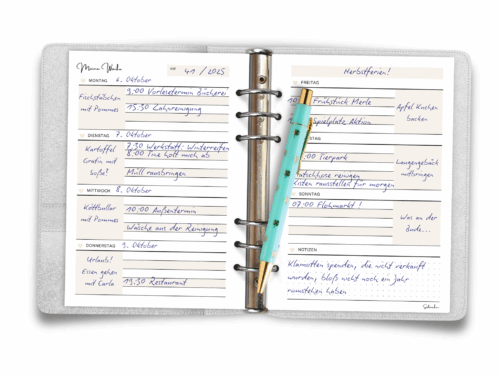 Meine Woche
41 / 2025
MONTAG 6. Oktober
Fischstäbchen
mit Pommes
9.00 Vorlesetermin Bücherei
15.30 Zahnreinigung
DIENSTAG 7. Oktober
Kartoffel
Gratin mit
Soße?
7.30 Werkstatt: Winterreifen
8.00 Tine holt mich ab
Müll rausbringen
MITTWOCH 8. Oktober
Köttbullar
mit Pommes
10.00 Außentermin
Wäsche aus der Reinigung
DONNERSTAG 9. Oktober
Urlaub!
Essen gehen
mit Carla
19.30 Restaurant
Herbstferien!
FREITAG
Frühstück Merle
Spielplatz Aktion
Apfel Kuchen
backen
:00 Tierpark
reinigen
Kisten rausstellen für morgen
Laugengebäck
mitbringen
SONNTAG
07.00 Flohmarkt!
Was an der
Bude...
NOTIZEN
Klamotten spenden, die nicht verkauft
wurden, bloß nicht noch ein Jahr
rumstehen haben